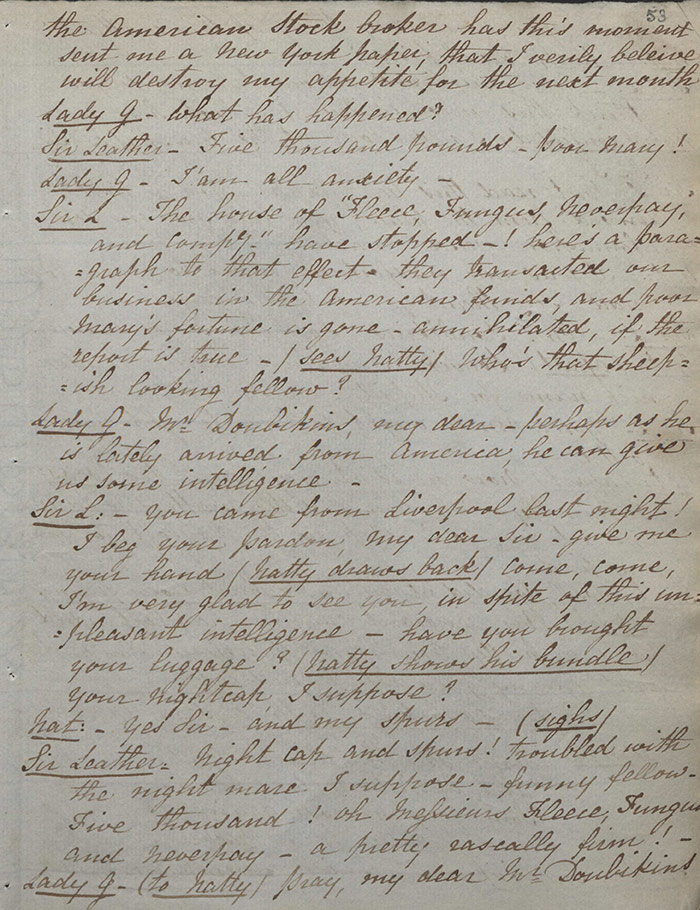 53
the American Stock broker has this moment
sent me a New York paper, that I verily beleive
will destroy my appetite for the next month
Lady G - What has happened?
Sir Leather - Five thousand pounds - poor Mary!
Lady G - I'am all anxiety -
Sir L - The house of "Fleece, Fungus, Neverpay,
and Compy." have stopped -! here's a para-
=graph to that effect - they transacted our
business in the American funds, and poor
Mary's fortune is gone - annihilated, if the
report is true - (sees Natty) Who's that sheep=
=ish looking fellow?
Lady G - Mr Doubikins, my dear - perhaps as he
is lately arrived from America, he can give
us some intelligence -
Sir L: - You came from Liverpool last night!
I beg your pardon, my dear Sir - give me
your hand (Natty draws back) come, come,
I'm very glad to see you, in spite of this un=
=pleasant intelligence - have you brought
your luggage? (Natty shows his bundle)
your nightcap, I suppose?
Nat: - Yes Sir - and my spurs - (sighs)
Sir Leather - Night cap and spurs! troubled with
the night mare I suppose - funny fellow -
Five thousand! oh Messieurs Fleece, Fungus
and Neverpay - a pretty rascally firm! -
Lady G - (to Natty) pray, my dear Mr Doubikins